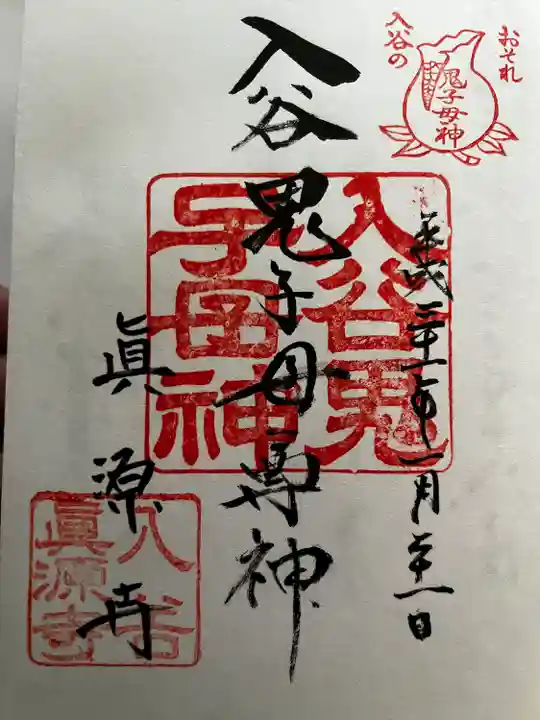 おそれ
入谷の
鬼子母神
平成三十一年一月二十一日
入谷鬼子母尊神
眞源寺
入谷鬼
子母神
入谷
眞源寺